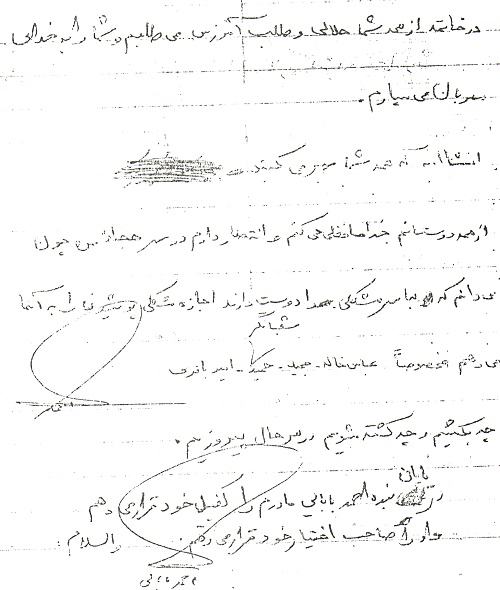 در خاتمه از همه شما حلالی و طلب آمرزش می طلبیم و شما را به خدای
مهربان می سپارم.
انشاالله که همه شما صبر می کنید
از همه دوستانم خداحافظی می کنم و انتظار دارم در سر جنازه من چون
می دانم که لباس مشکی را دوست دارند اجازه مشکی پوشیدن را به آنها
نمی دهم مخصوصاً عباس خاله - حمید - امیر باقری
چه بکشیم و چه کشته شویم در هر حال پیروزیم.
پایان
بنده احمد بابایی مادرم را کفیل خود قرار می دهم
و او را صاحب اختیار خود قرار می دهم. والسلام.
احمد بابائی